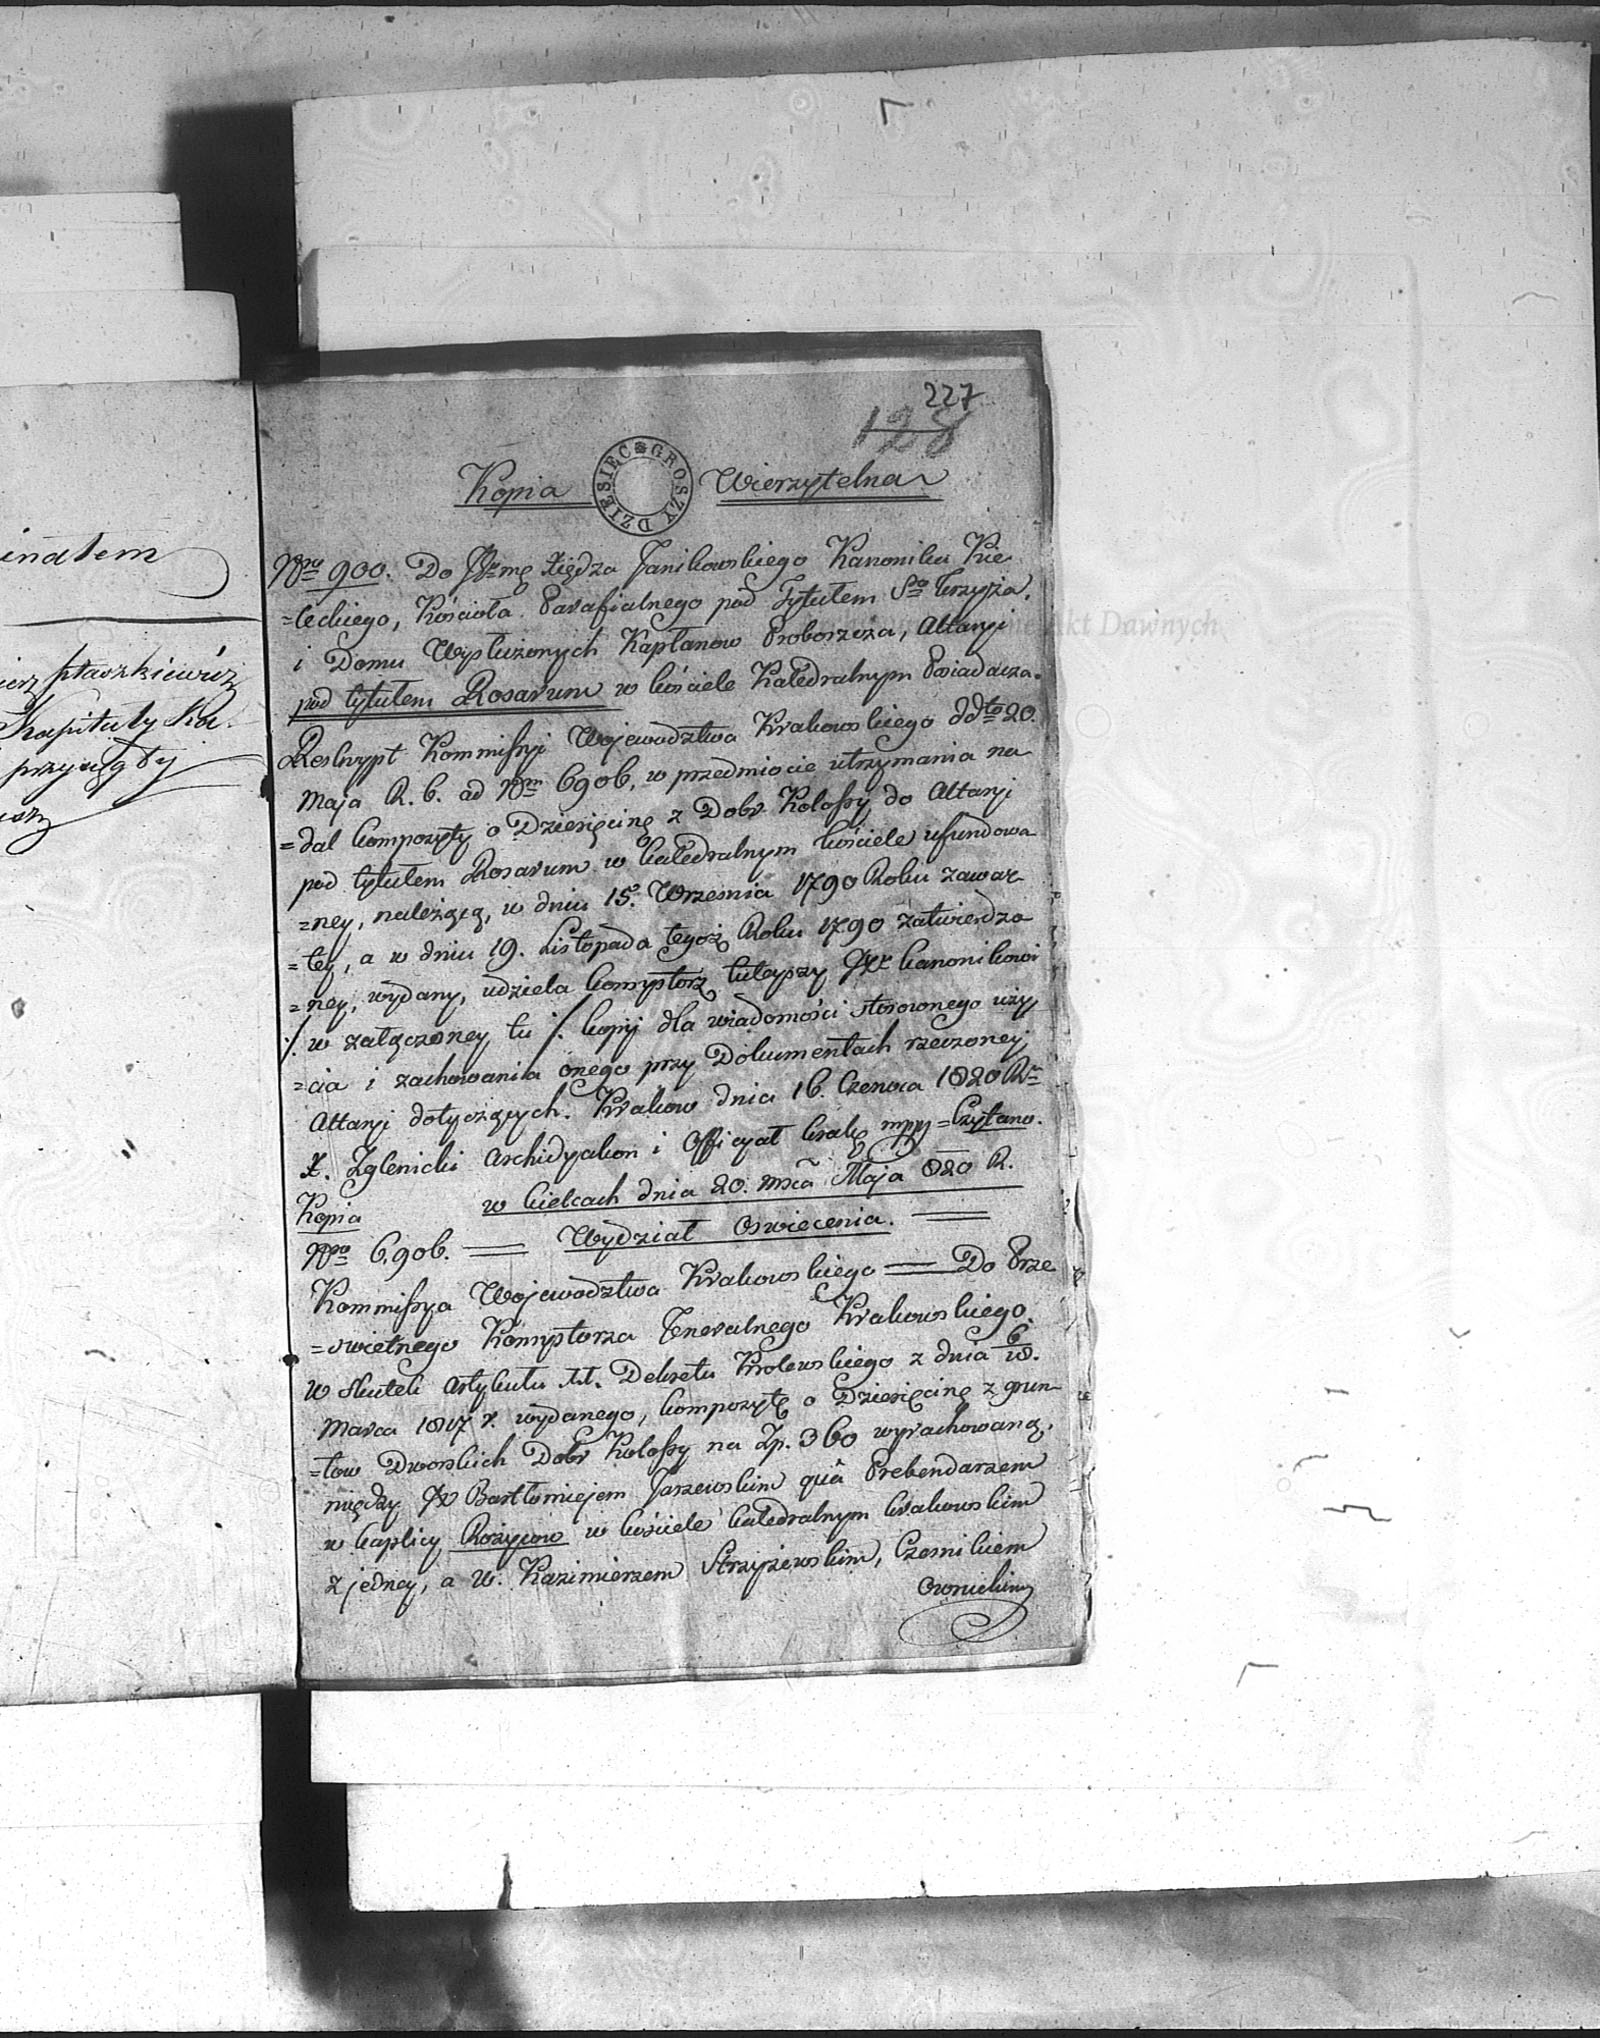 inatem
ptaszkiewicz
Kapituły Ka-
przysięgły
227
128
Kopia Wierzytelna
DZIESIEC GROSZY
Nro 900. Do JWmę Xiędza Janikowskiego Kanonika Kie
=leckiego, Kościoła Parafialnego pod Tytułem Sgo Krzyża,
i Domu Wysłużonych Kapłanow Proboszcza, Altaryi
pod tytułem Rosarum w kościele Katedralnym Posiadacza.
Reskrypt Kommissyi Województwa Krakowskiego ddto 20.
Maja R. b. ad Nrm 6906, w przedmiocie utrzymania na
=dal kompozyty o Dziesięcinę z Dobr Kolossy do Altaryi
pod tytułem Rosarum w katedralnym kościele ufundowa
=ney, należącą, w dniu 15. Wrzesnia 1790 Roku zawar
=tey, a w dniu 19. Listopada tegoż Roku 1790 zatwierdzo
=ney, wydany, udziela konsystorz tuteyszy JX kanonikowi
·/. w załączoney tu ·/. kopij dla wiadomości stosownego uży
=cia i zachowania onego przy Dokumentach rzeczoney
Altaryi dotyczących. Krakow dnia 16. Czerwca 1820 R.
X. Zglenicki Archidyakon i Officyał Krakg mpp = Czytano.
Kopia w kielcach dnia 20. msca Maja 820 R.
Nro 6,906. Wydział Oswiecenia.
Kommissya Województwa Krakowskiego Do Prze
=swietnego Konsystorza Generalnego Krakowskiego.
W skutek Artykułu 11. Dekretu Krolewskiego z dnia 6/18.
Marca 1817 r. wydanego, kompozytę o Dziesięcinę z grun
=tow Dworskich Dobr Kolossy na Zp. 360 wyrachowaną,
między JX Bartłomiejem Jarzewskim quâ Prebendarzem
w kaplicy Rożycow w kościele katedralnym krakowskim
z jedney, a W. Kazimierzem Strzyżewskim, Czesnikiem
Akt Dawnych